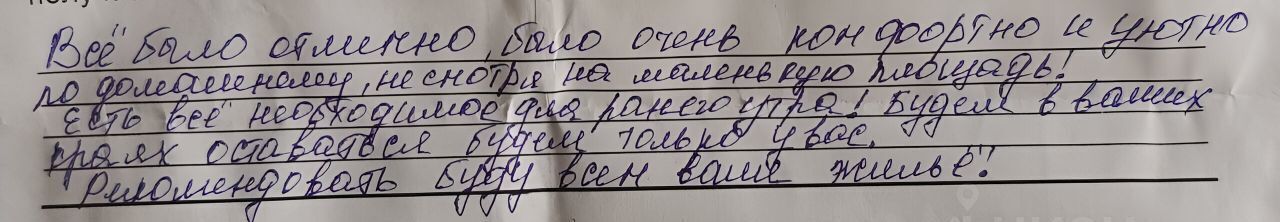 Всё было отлично, было очень конфортно и уютно
по домашнему, не смотря на маленькую площадь!
Есть всё необходимое для ранего утра! Будем в ваших
краях оставаться будем только у вас.
Рекомендовать буду всем ваше жильё!